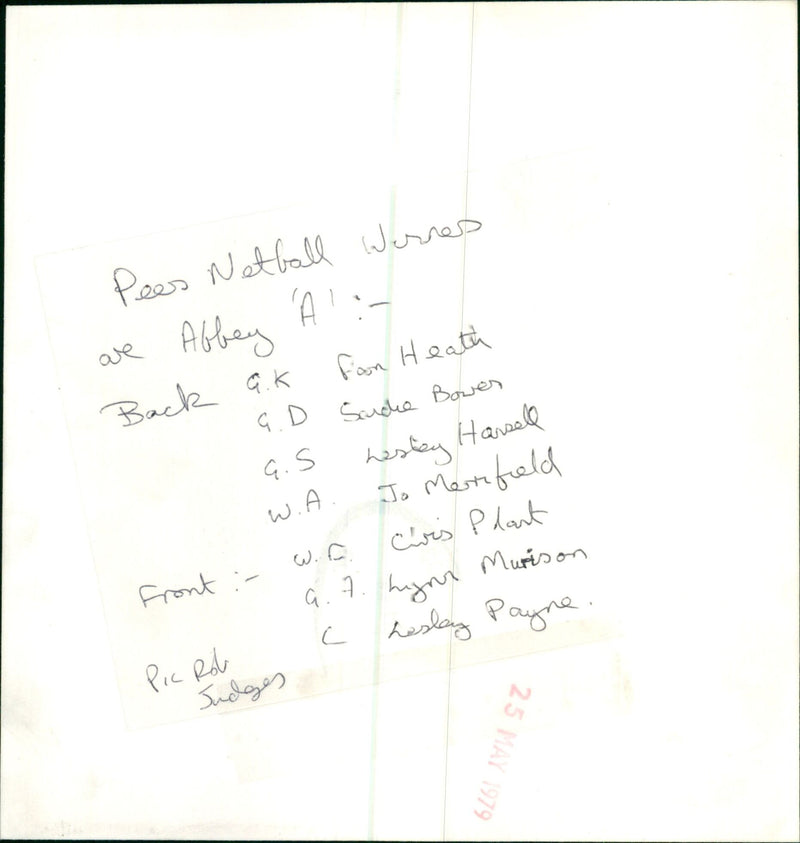 Pees Netball Winners
are Abbey 'A' :-
Back G.K Fran Heath
G.D Sandie Bower
G.S Lesley Hansell
W.A. Jo Merrifield
Front :- W.D. Chris Plant
G.A. Lynn Murison
C Lesley Payne.
Pic Rob
Judges
25 MAY 1979